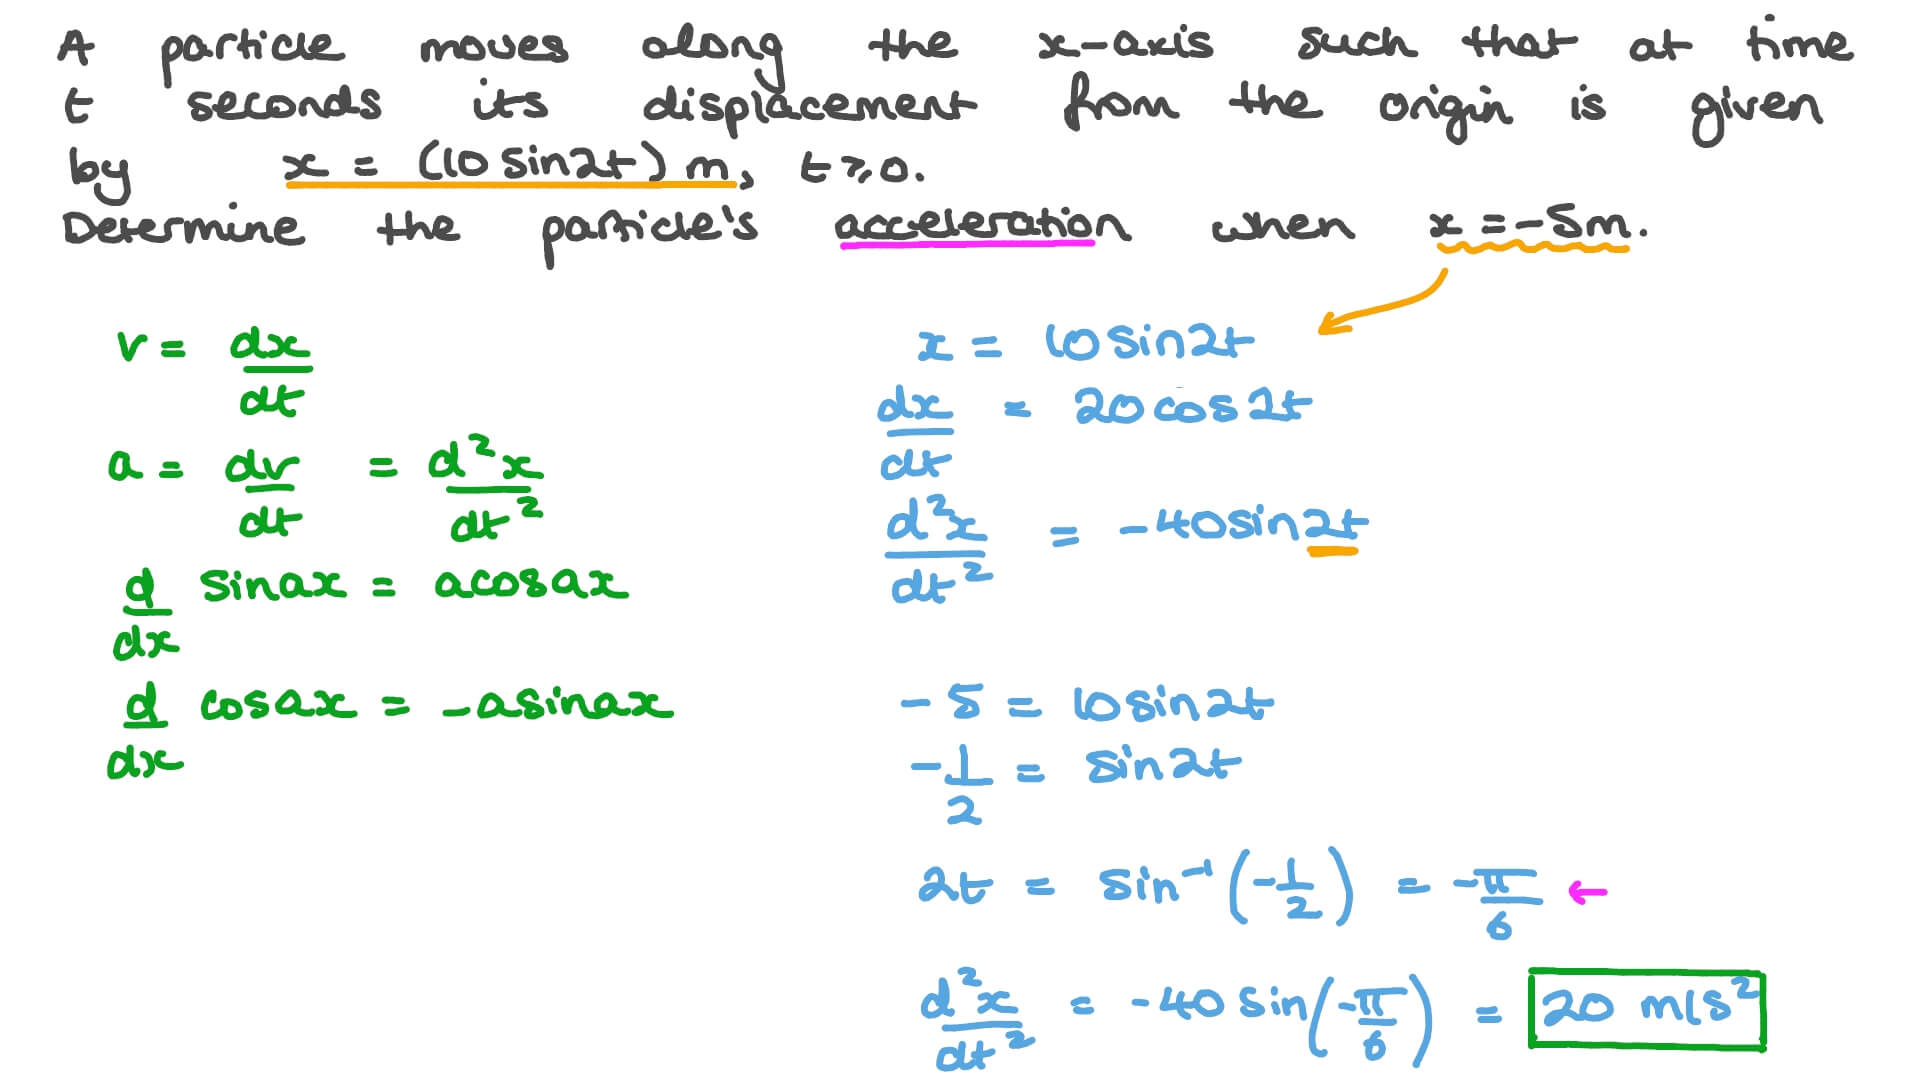 A particle moves along the x-axis such that at time
t seconds its displacement from the origin is given
by x = (10 sin2t) m, t ⩾ 0.
Determine the particle's acceleration when x = -5m.
v = dx/dt
a = dv/dt = d²x/dt²
d/dx sinax = acosax
d/dx cosax = -asinax
x = 10sin2t
dx/dt = 20cos2t
d²x/dt² = -40sin2t
-5 = 10sin2t
-1/2 = sin2t
2t = sin⁻¹(-1/2) = -π/6
d²x/dt² = -40 sin(-π/6) = 20 m/s²